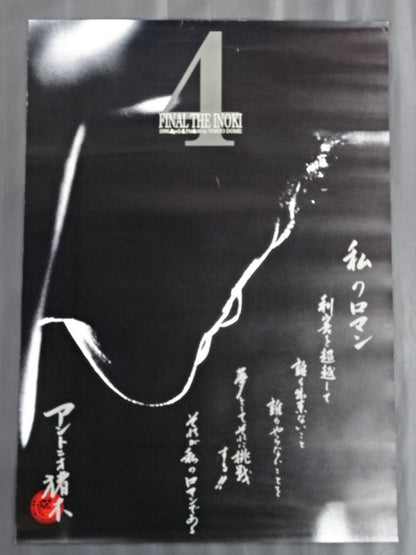 4
FINAL THE INOKI
1998▲April▲Final▲in TOKYO DOME
私のロマン
利害を超越して
誰も出来ないこと
誰もやらないことを
夢をもってそれに挑戦
する!!
それが私のロマンである
アントニオ猪木